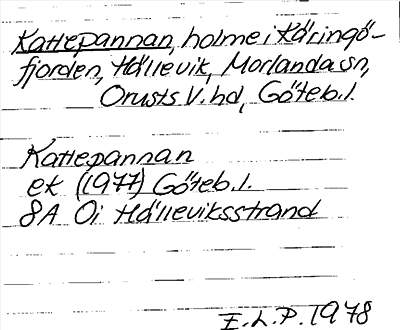 Kattepannan, holme i Käringö-
fjorden, Hällevik, Morlanda sn,
Orusts V. hd, Göteb. l.
Kattepannan
ek (1977) Göteb. l.
8A Oi Hälleviksstrand
E. L. P. 1978